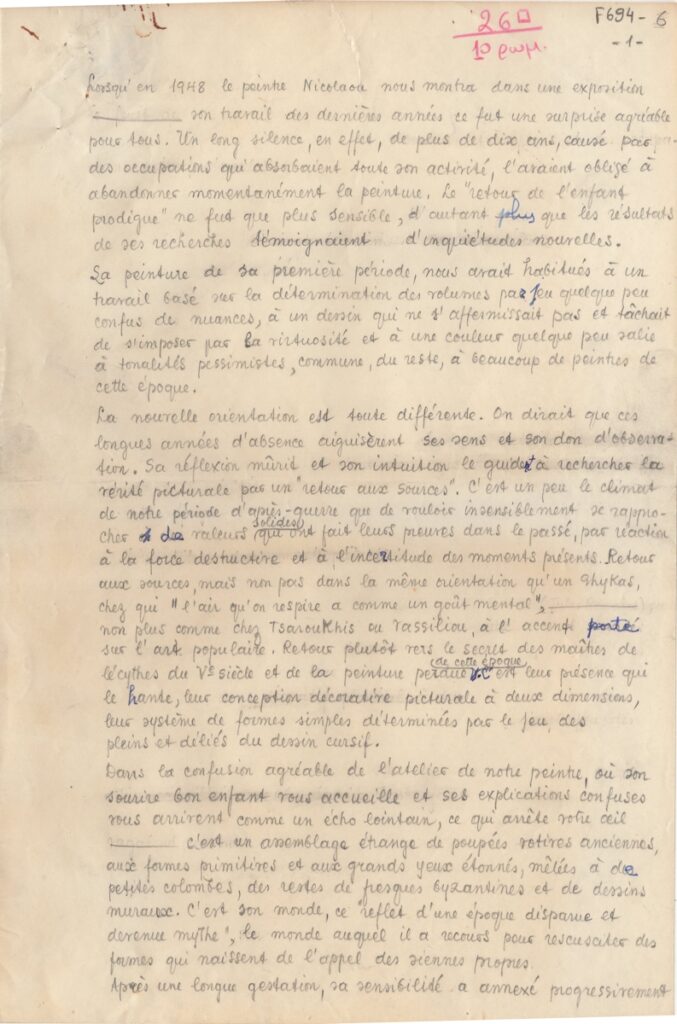 26
10 ρωμ.
F694-6
-1-
Lorsqu'en 1948 le peintre Nicolaou nous montra dans une exposition
son travail des dernières années ce fut une surprise agréable
pour tous. Un long silence, en effet, de plus de dix ans, causé par
des occupations qui absorbaient toute son activité, l'avaient obligé à
abandonner momentanément la peinture. Le "retour de l'enfant
prodigue" ne fut que plus sensible, d'autant plus que les résultats
de ses recherches témoignaient d'inquiétudes nouvelles.
La peinture de sa première période, nous avait habitués à un
travail basé sur la détermination des volumes par jeu quelque peu
confus de nuances, à un dessin qui ne s'affermissait pas et tâchait
de s'imposer par la virtuosité et à une couleur quelque peu salie
à tonalités pessimistes, commune, du reste, à beaucoup de peintres de
cette époque.
La nouvelle orientation est toute différente. On dirait que ces
longues années d'absence aiguisèrent ses sens et son don d'observa-
tion. Sa réflexion mûrit et son intuition le guident à rechercher la
vérité picturale par un "retour aux sources". C'est un peu le climat
de notre période d'après-guerre que de vouloir insensiblement se rappro-
cher de valeurs solides qui ont fait leurs preuves dans le passé, par réaction
à la force destructive et à l'incertitude des moments présents. Retour
aux sources, mais non pas dans la même orientation qu'un Ghykas,
chez qui "l'air qu'on respire a comme un goût mental",
non plus comme chez Tsaroukhis ou Vassiliou, à l'accent porté
sur l'art populaire. Retour plutôt vers le secret des maîtres de
lécythes du Ve siècle et de la peinture perdue de cette époque. C'est leur présence qui
le hante, leur conception décorative picturale à deux dimensions,
leur système de formes simples déterminées par le jeu des
pleins et déliés du dessin cursif.
Dans la confusion agréable de l'atelier de notre peintre, où son
sourire bon enfant vous accueille et ses explications confuses
vous arrivent comme un écho lointain, ce qui arrête votre œil
c'est un assemblage étrange de poupées votives anciennes,
aux formes primitives et aux grands yeux étonnés, mêlées à de
petites colombes, des restes de fresques byzantines et de dessins
muraux. C'est son monde, ce "reflet d'une époque disparue et
devenue mythe", le monde auquel il a recours pour rescusciter des
formes qui naissent de l'appel des siennes propres.
Après une longue gestation, sa sensibilité a annexé progressivement